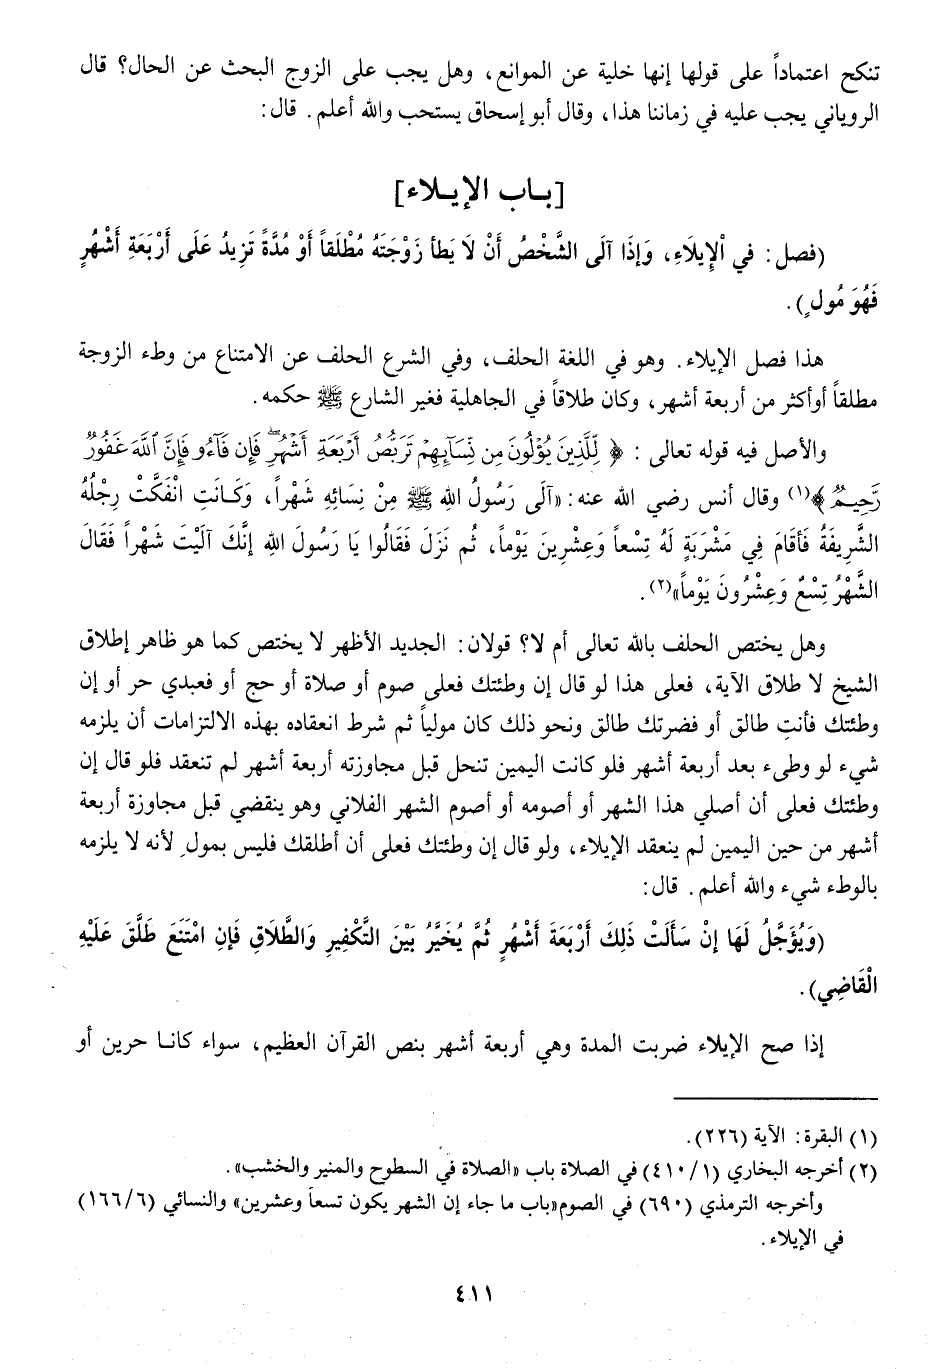 تنكح اعتماداً على قولها إنها خلية عن الموانع، وهل يجب على الزوج البحث عن الحال؟ قال
الروياني يجب عليه في زماننا هذا، وقال أبو إسحاق يستحب والله أعلم. قال:
[باب الإيلاء]
(فصل: في اْلإِيلَاءِ، وَإِذَا آلَى الشَّخْصُ أَنْ لَا يَطأ زَوْجَتَهُ مُطْلَقاً أَوْ مُدَّةً تَزِيدُ عَلَى أَرْبَعَةِ أَشْهُرٍ
فَهُوَ مُولٍ).
هذا فصل الإيلاء. وهو في اللغة الحلف، وفي الشرع الحلف عن الامتناع من وطء الزوجة
مطلقاً أوأكثر من أربعة أشهر، وكان طلاقاً في الجاهلية فغير الشارع ﷺ حكمه.
والأصل فيه قوله تعالى: ﴿لِّلَّذِينَ يُؤْلُونَ مِن نِّسَآئِهِمْ تَرَبُّصُ أَرْبَعَةِ أَشْهُرٍۖ فَإِن فَآءُو فَإِنَّ ٱللَّهَ غَفُورٌ
رَّحِيمٌ﴾(١) وقال أنس رضي الله عنه: «آلَى رَسُولُ اللهِ ﷺ مِنْ نِسَائِهِ شَهْراً، وَكَانَتِ انْفَكَّتْ رِجْلُهُ
الشَّرِيفَةُ فَأَقَامَ فِي مَشْرَبَةٍ لَهُ تِسْعاً وَعِشْرِينَ يَوْماً، ثُم نَزَلَ فَقَالُوا يَا رَسُولَ اللهِ إنَّكَ آلَيْتَ شَهْراً فَقَالَ
الشَّهْرُ تِسْعٌ وَعِشْرُونَ يَوْماً»(٢).
وهل يختص الحلف بالله تعالى أم لا؟ قولان: الجديد الأظهر لا يختص كما هو ظاهر إطلاق
الشيخ لا طلاق الآية، فعلى هذا لو قال إن وطئتك فعلى صوم أو صلاة أو حج أو فعبدي حر أو إن
وطئتك فأنتِ طالق أو فضرتك طالق ونحو ذلك كان مولياً ثم شرط انعقاده بهذه الالتزامات أن يلزمه
شيء لو وطىء بعد أربعة أشهر فلو كانت اليمين تنحل قبل مجاوزته أربعة أشهر لم تنعقد فلو قال إن
وطئتك فعلى أن أصلي هذا الشهر أو أصومه أو أصوم الشهر الفلاني وهو ينقضي قبل مجاوزة أربعة
أشهر من حين اليمين لم ينعقد الإيلاء، ولو قال إن وطئتك فعلى أن أطلقك فليس بمولٍ لأنه لا يلزمه
بالوطء شيء والله أعلم. قال:
(وَيُؤَجَّلُ لَهَا إنْ سَأَلَتْ ذَلِكَ أَرْبَعَةَ أَشْهُرٍ ثُمَّ يُخَيَّرُ بَيْنَ التَّكْفِيرِ وَالطَّلَاقِ فَإنِ امْتَنَعَ طَلَّقَ عَلَيْهِ
الْقَاضِي).
إذا صح الإيلاء ضربت المدة وهي أربعة أشهر بنص القرآن العظيم، سواء كانا حرين أو
(١) البقرة: الآية (٢٢٦).
(٢) أخرجه البخاري (٤١٠/١) في الصلاة باب «الصلاة في السطوح والمنبر والخشب».
وأخرجه الترمذي (٦٩٠) في الصوم«باب ما جاء إن الشهر يكون تسعاً وعشرين» والنسائي (١٦٦/٦)
في الإيلاء.
٤١١